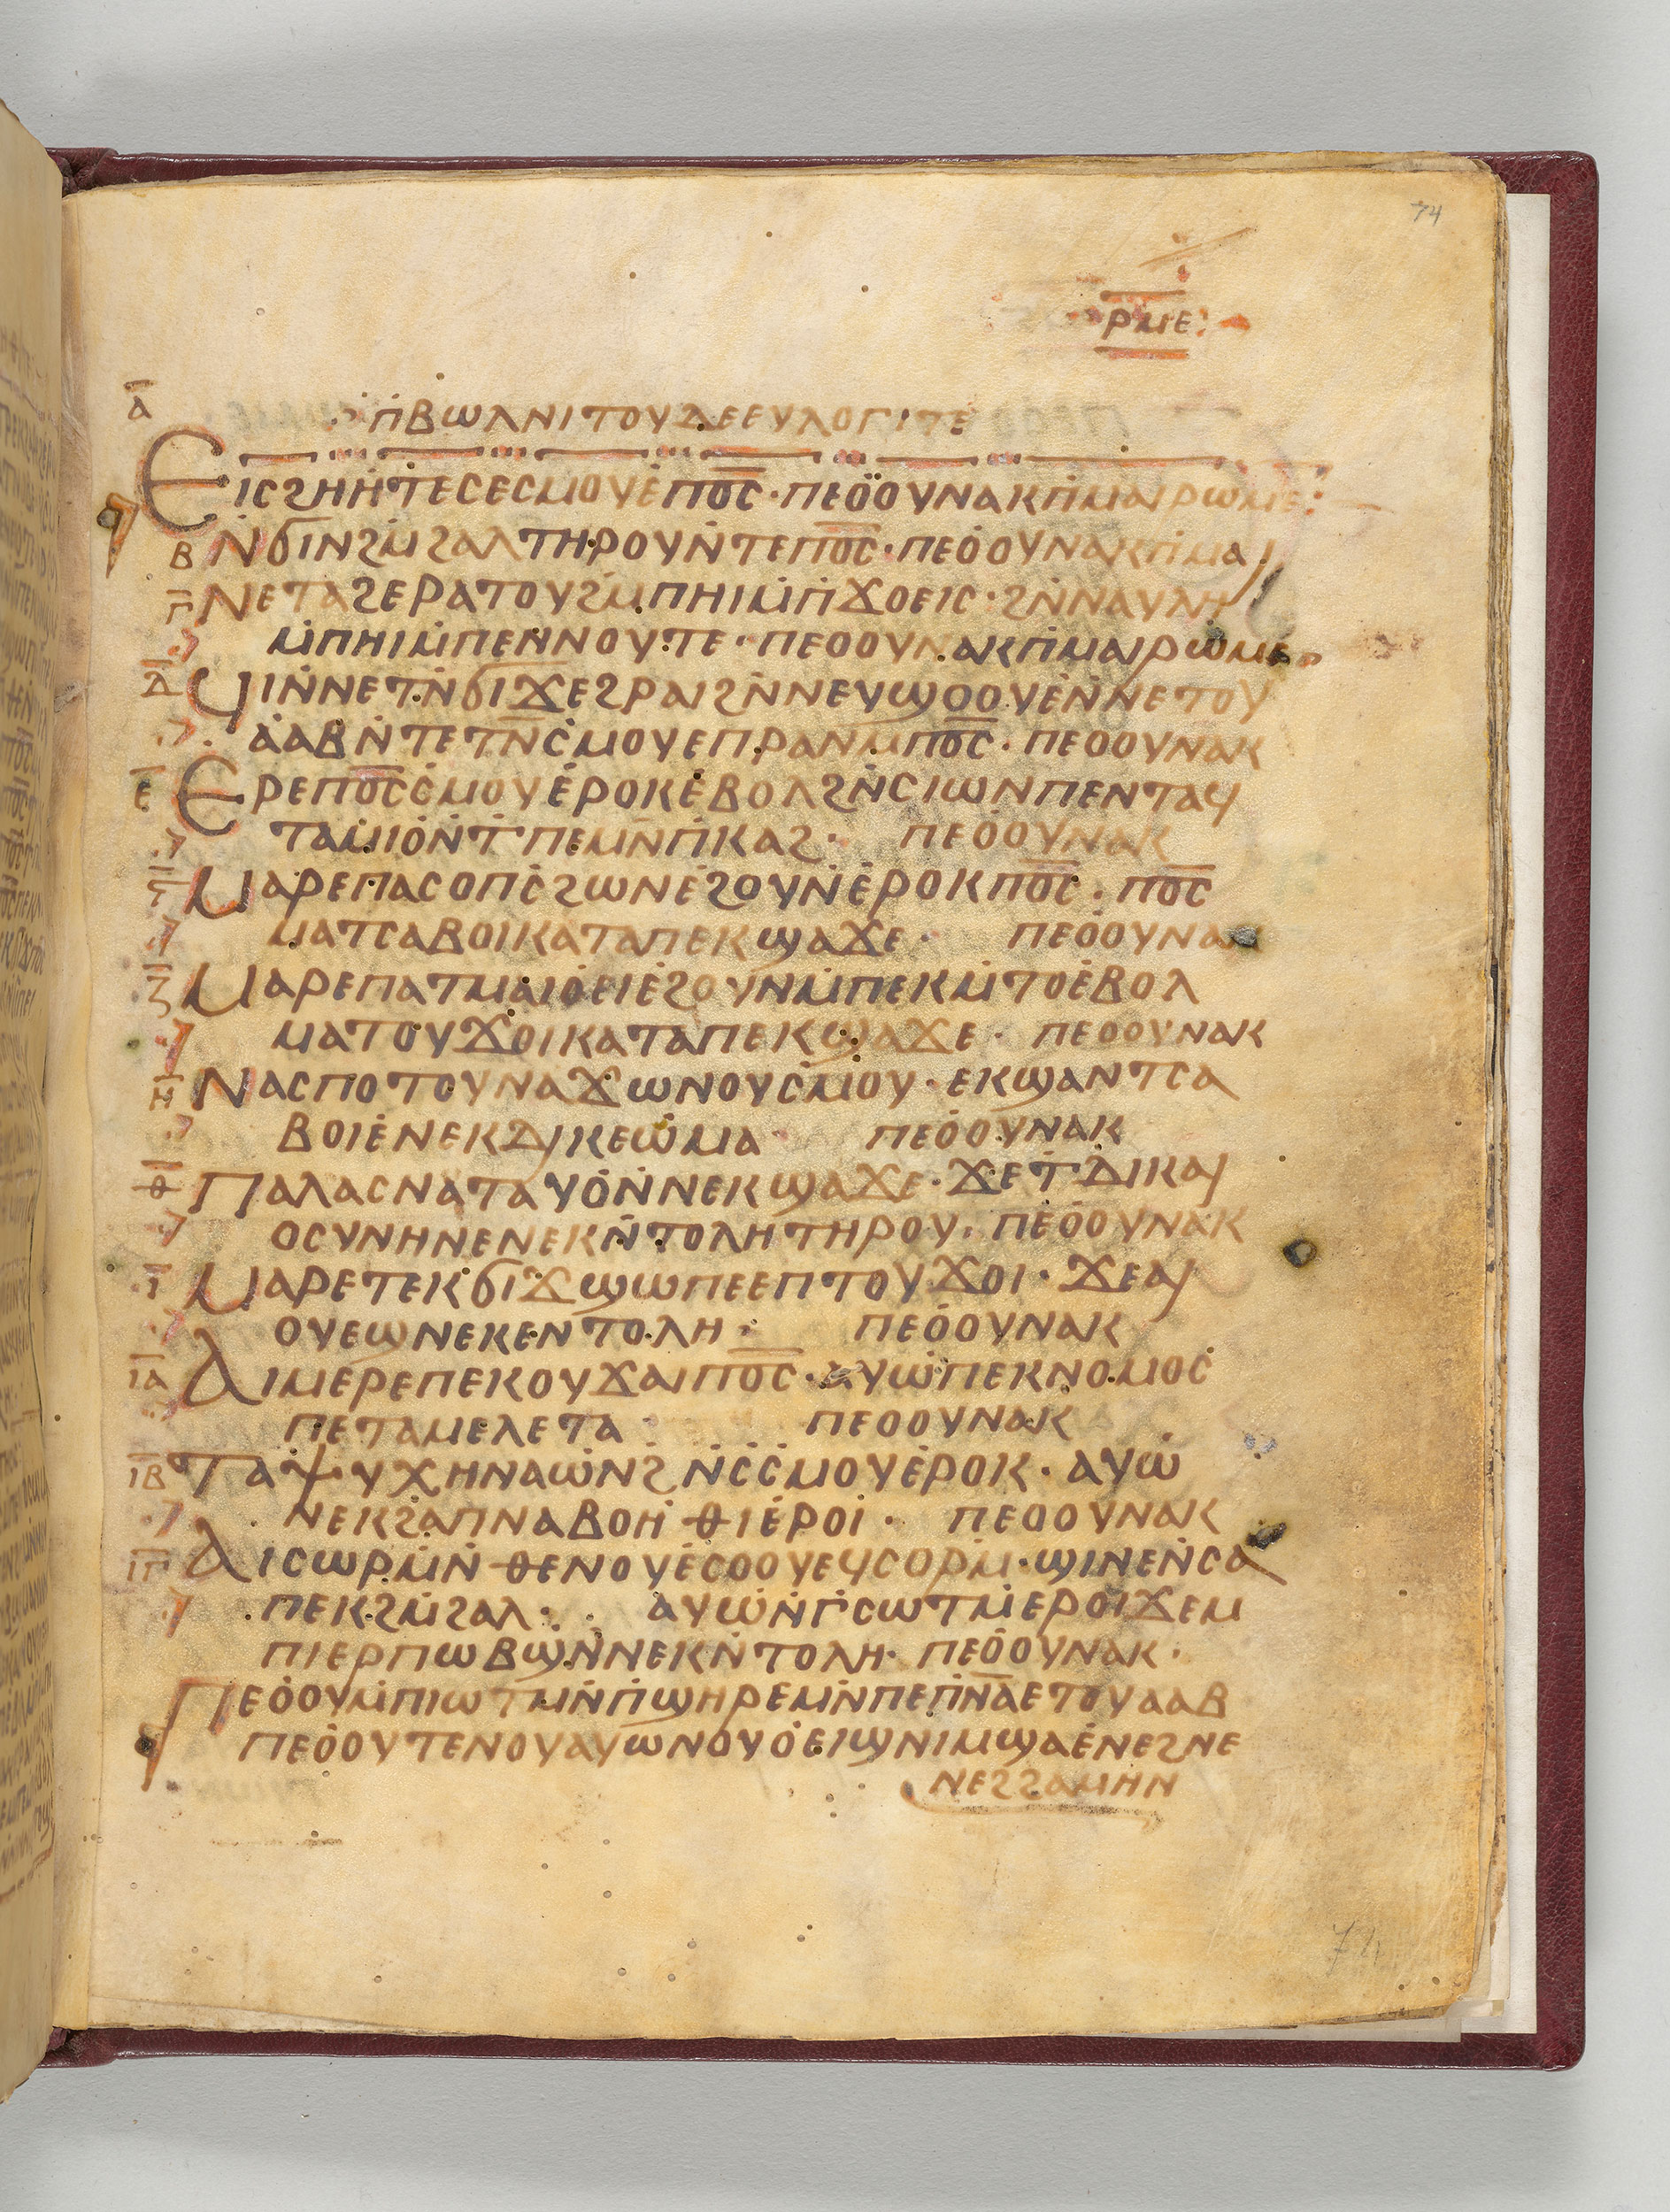 74
ⲣⲙⲉ
ⲁ̄
ⲡ̇ⲃⲱⲗⲛⲓⲧⲟⲩⲇⲉⲉⲩⲗⲟⲅⲓⲧⲉ
Ⲉⲓⲥϩⲏⲏ̇ⲧⲉⲥⲉⲥⲙⲟⲩⲉ̇ⲡⲟ̅ⲥ̅·ⲡⲉⲟ̇ⲟⲩⲛⲁⲕⲡ̇ⲙⲁⲓⲣⲱⲙⲉ:
ⲃ Ⲛ̇ϭⲓⲛϩⲙ̇ϩⲁⲗⲧⲏⲣⲟⲩⲛ̇ⲧⲉⲡⲟ̅ⲥ̅·ⲡⲉⲟ̇ⲟⲩⲛⲁⲕⲡ̇ⲙⲁⲓ
ⲅ̄ Ⲛⲉⲧⲁϩⲉⲣⲁⲧⲟⲩϩⲙ̇ⲡⲏⲓⲙ̇ⲡ̇ϫⲟⲉⲓⲥ·ϩⲛ̇ⲛⲁⲩⲗⲏ
ⲙ̇ⲡⲏⲓⲙ̇ⲡⲉⲛⲛⲟⲩⲧⲉ·ⲡⲉⲟⲟⲩⲛⲁⲕⲡ̇ⲙⲁⲓⲣⲱⲙⲉ
ⲇ̄ Ϥⲓⲛⲛⲉⲧⲛϭⲓϫⲉϩⲣⲁⲓϩⲛ̇ⲛⲉⲩϣⲟⲟⲩⲉ̇ⲛ̇ⲛⲉⲧⲟⲩ
ⲁ̇ⲁⲃⲛ̇ⲧⲉⲧⲛ̄ⲥ̇ⲙⲟⲩⲉⲡⲣⲁⲛⲙⲡⲟ̅ⲥ̅·ⲡⲉⲟⲟⲩⲛⲁⲕ
ⲉ̄ Ⲉⲣⲉⲡⲟ̅ⲥ̅ⲥ̇ⲙⲟⲩⲉ̇ⲣⲟⲕⲉ̇ⲃⲟⲗϩⲛ̇ⲥⲓⲱⲛⲡⲉⲛⲧⲁϥ
ⲧⲁⲙⲓⲟ̇ⲛ̇ⲧ̇ⲡⲉⲙⲛ̇ⲡ̇ⲕⲁϩ· ⲡⲉⲟ̇ⲟⲩⲛⲁⲕ
ⲋ̄ Ⲙⲁⲣⲉⲡⲁⲥⲟⲡⲥ̇ϩⲱⲛⲉϩⲟⲩⲛ̇ⲉ̇ⲣⲟⲕⲡⲟ̅ⲥ̅·ⲡⲟ̅ⲥ̅
ⲙⲁⲧⲥⲁⲃⲟⲓⲕⲁⲧⲁⲡⲉⲕϣⲁϫⲉ· ⲡⲉⲟ̇ⲟⲩⲛⲁⲕ
ⲍ̄ Ⲙⲁⲣⲉⲡⲁⲧⲙⲁⲓⲟ̇ⲉⲓⲉϩⲟⲩⲛⲙ̇ⲡⲉⲕⲙ̇ⲧⲟⲉ̇ⲃⲟⲗ
ⲙⲁⲧⲟⲩϫⲟⲓⲕⲁⲧⲁⲡⲉⲕϣⲁϫⲉ· ⲡⲉⲟⲟⲩⲛⲁⲕ
ⲏ̄ Ⲛⲁⲥⲡⲟⲧⲟⲩⲛⲁϫⲱⲛⲟⲩⲥ̇ⲙⲟⲩ·ⲉⲕϣⲁⲛⲧⲥⲁ
ⲃⲟⲓⲉ̇ⲛⲉⲕⲇⲓⲕⲉⲱⲙⲁ· ⲡⲉⲟ̇ⲟⲩⲛⲁⲕ
ⲑ̄ Ⲡⲁⲗⲁⲥⲛⲁⲧⲁⲩⲟ̇ⲛ̇ⲛⲉⲕϣⲁϫⲉ·ϫⲉⲧ̇ⲇⲓⲕⲁⲓ
ⲟⲥⲩⲛⲏⲛⲉⲛⲉⲕⲛ̇ⲧⲟⲗⲏⲧⲏⲣⲟⲩ· ⲡⲉⲟ̇ⲟⲩⲛⲁⲕ
ⲓ̄ Ⲙⲁⲣⲉⲧⲉⲕϭⲓϫϣⲱⲡⲉⲉⲡⲧⲟⲩϫⲟⲓ·ϫⲉⲁⲓ
ⲟⲩⲉϣⲛⲉⲕⲉⲛⲧⲟⲗⲏ· ⲡⲉⲟ̇ⲟⲩⲛⲁⲕ
ⲓ̅ⲁ̅ Ⲁⲓⲙⲉⲣⲉⲡⲉⲕⲟⲩϫⲁⲓⲡⲟ̅ⲥ̅·ⲁⲩⲱ̇ⲡⲉⲕⲛⲟⲙⲟⲥ̇
ⲡⲉⲧⲁⲙⲉⲗⲉⲧⲁ· ⲡⲉⲟⲟⲩⲛⲁⲕ
ⲓ̅ⲃ̅ Ⲧⲁⲯⲩⲭⲏⲛⲁⲱ̇ⲛϩ̇ⲛ̇ⲥ̇ⲥ̇ⲙⲟⲩⲉ̇ⲣⲟⲕ·ⲁⲩⲱ̇
ⲛⲉⲕϩⲁⲡⲛⲁⲃⲟⲏ̇ⲑⲓⲉ̇ⲣⲟⲓ· ⲡⲉⲟⲟⲩⲛⲁⲕ
ⲓ̅ⲅ̅ Ⲁⲓⲥⲱⲣⲙ̇ⲛ̇ⲑⲉⲛⲟⲩⲉ̇ⲥⲟⲟⲩⲉϥⲥⲟⲣⲙ·ϣⲓⲛⲉⲛ̇ⲥⲁ
ⲡⲉⲕϩⲙ̇ϩⲁⲗ· ⲁⲩⲱ̇ⲛ̇ⲅ̇ⲥⲱⲧⲙ̇ⲉⲣⲟⲓϫⲉⲙ
ⲡⲓⲉⲣⲡⲱⲃϣ̇ⲛ̇ⲛⲉⲕⲛ̇ⲧⲟⲗⲏ·ⲡⲉⲟ̇ⲟⲩⲛⲁⲕ·
Ⲡⲉⲟ̇ⲟⲩⲙ̇ⲡⲓⲱⲧⲙⲛ̇ⲡ̇ϣⲏⲣⲉⲙⲛ̇ⲡⲉⲡ̅ⲛ̅ⲁⲉⲧⲟⲩⲁⲁⲃ
ⲡⲉⲟ̇ⲟⲩⲧⲉⲛⲟⲩⲁⲩⲱⲛⲟⲩⲟ̇ⲉⲓϣⲛⲓⲙϣⲁⲉ̇ⲛⲉϩⲛⲉ
ⲛⲉϩϩⲁⲙⲏⲛ
74